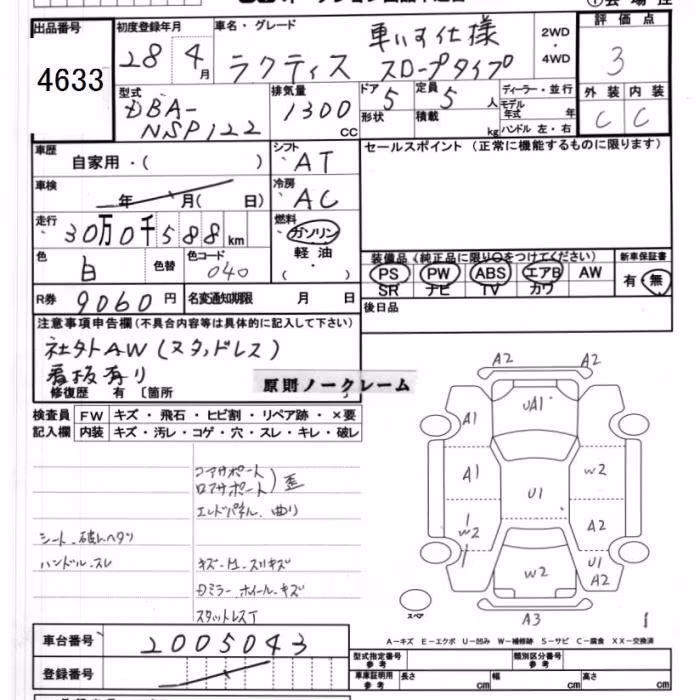 出品番号
4633
初度登録年月
28 4月
車名・グレード
車いす仕様
ラクティス スロープタイプ
2WD
・
4WD
評価点
3
外装 内装
C C
型式
DBA-
NSP122
排気量
1300
CC
ドア
5
定員
5 人
形状
積載
kg
ディーラー・並行
モデル
年式 年
ハンドル 左・右
車歴
自家用・( )
シフト
AT
セールスポイント (正常に機能するものに限ります)
車検
年 月( 日)
冷房
AC
走行
30万0千588km
燃料
ガソリン
軽油
( )
色
白
色替
色コード
040
装備品 (純正品に限り〇をつけてください)
PS PW ABS エアB AW
SR ナビ TV カワ
新車保証書
有・無
R券
9060円
名変通知期限 月 日
後日品
注意事項申告欄 (不具合内容等は具体的に記入して下さい)
社外AW (スタッドレス)
看板有り
修復歴 有 〔箇所
原則ノークレーム
検査員
記入欄
FW キズ・飛石・ヒビ割・リペア跡・×要
内装 キズ・汚レ・コゲ・穴・スレ・キレ・破レ
コアサポート
ロアサポート) 歪
エンドパネル. 曲り
シート.破レヘタリ
ハンドル.スレ
スタットレスT
A2 A2
A1 UA1
A1 W2
U1
W2 A2
U1
A2
W2
スペア
A3
1
A-キズ E-エクボ U-凹み W-補修跡 S-サビ C-腐食 XX-交換済
車台番号
2005043
登録番号
型式指定番号
参考
類別区分番号
参考
車庫証明用
参考
長さ cm 幅 cm 高さ cm